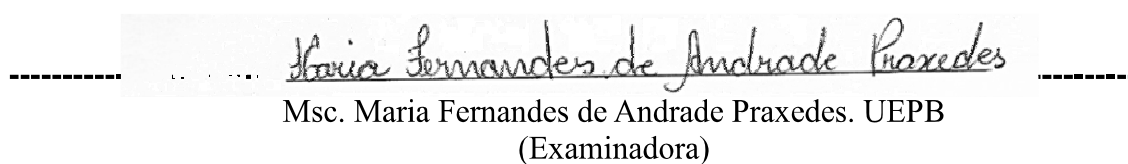 Maria Fernandes de Andrade Praxedes
Msc. Maria Fernandes de Andrade Praxedes. UEPB
(Examinadora)